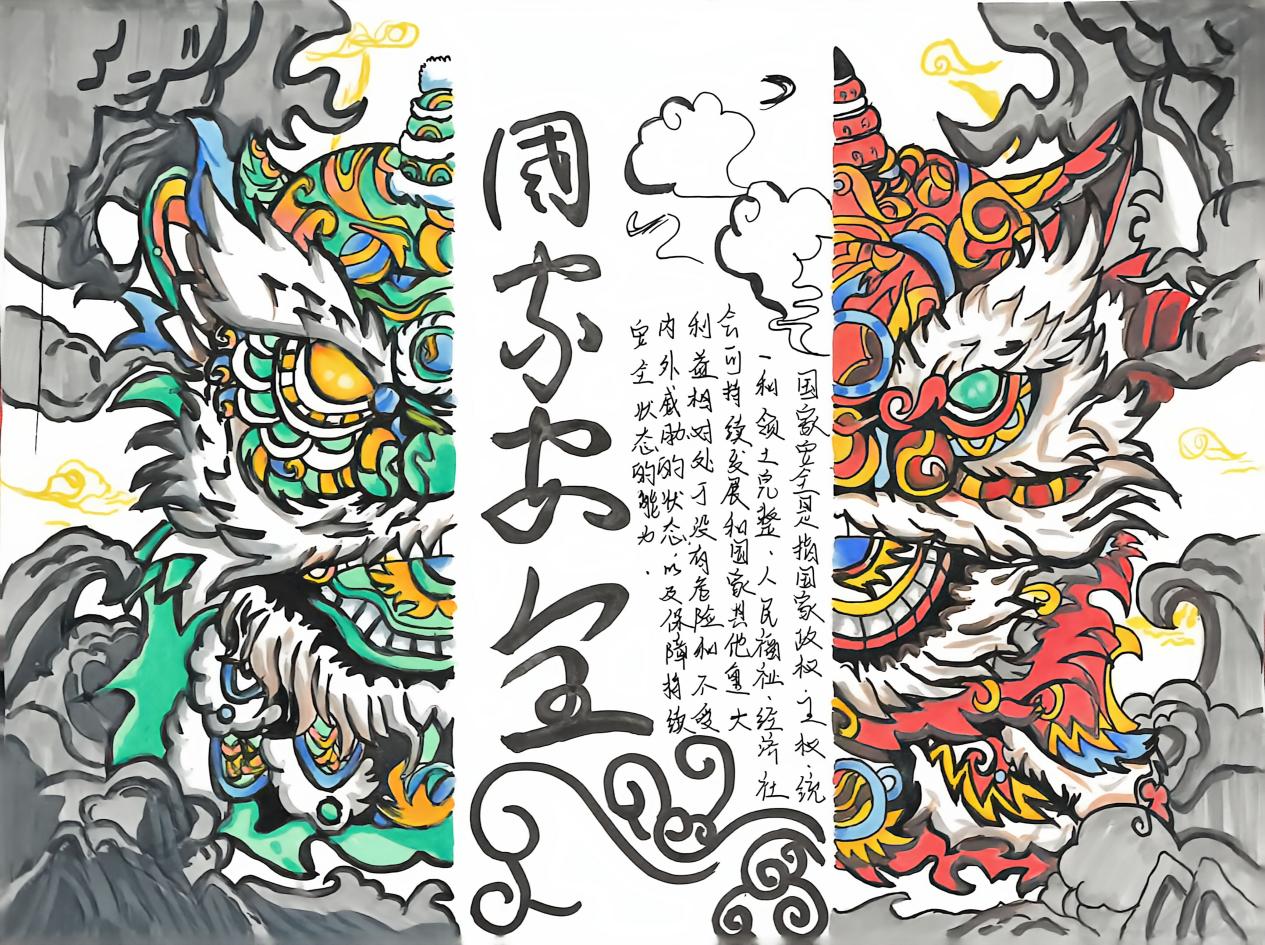 國家安全
国家安全是指国家政权、主权、统
一和领土完整、人民福祉、经济社
会可持续发展和国家其他重大
利益相对处于没有危险和不受
内外威胁的状态，以及保障持续
安全状态的能力.